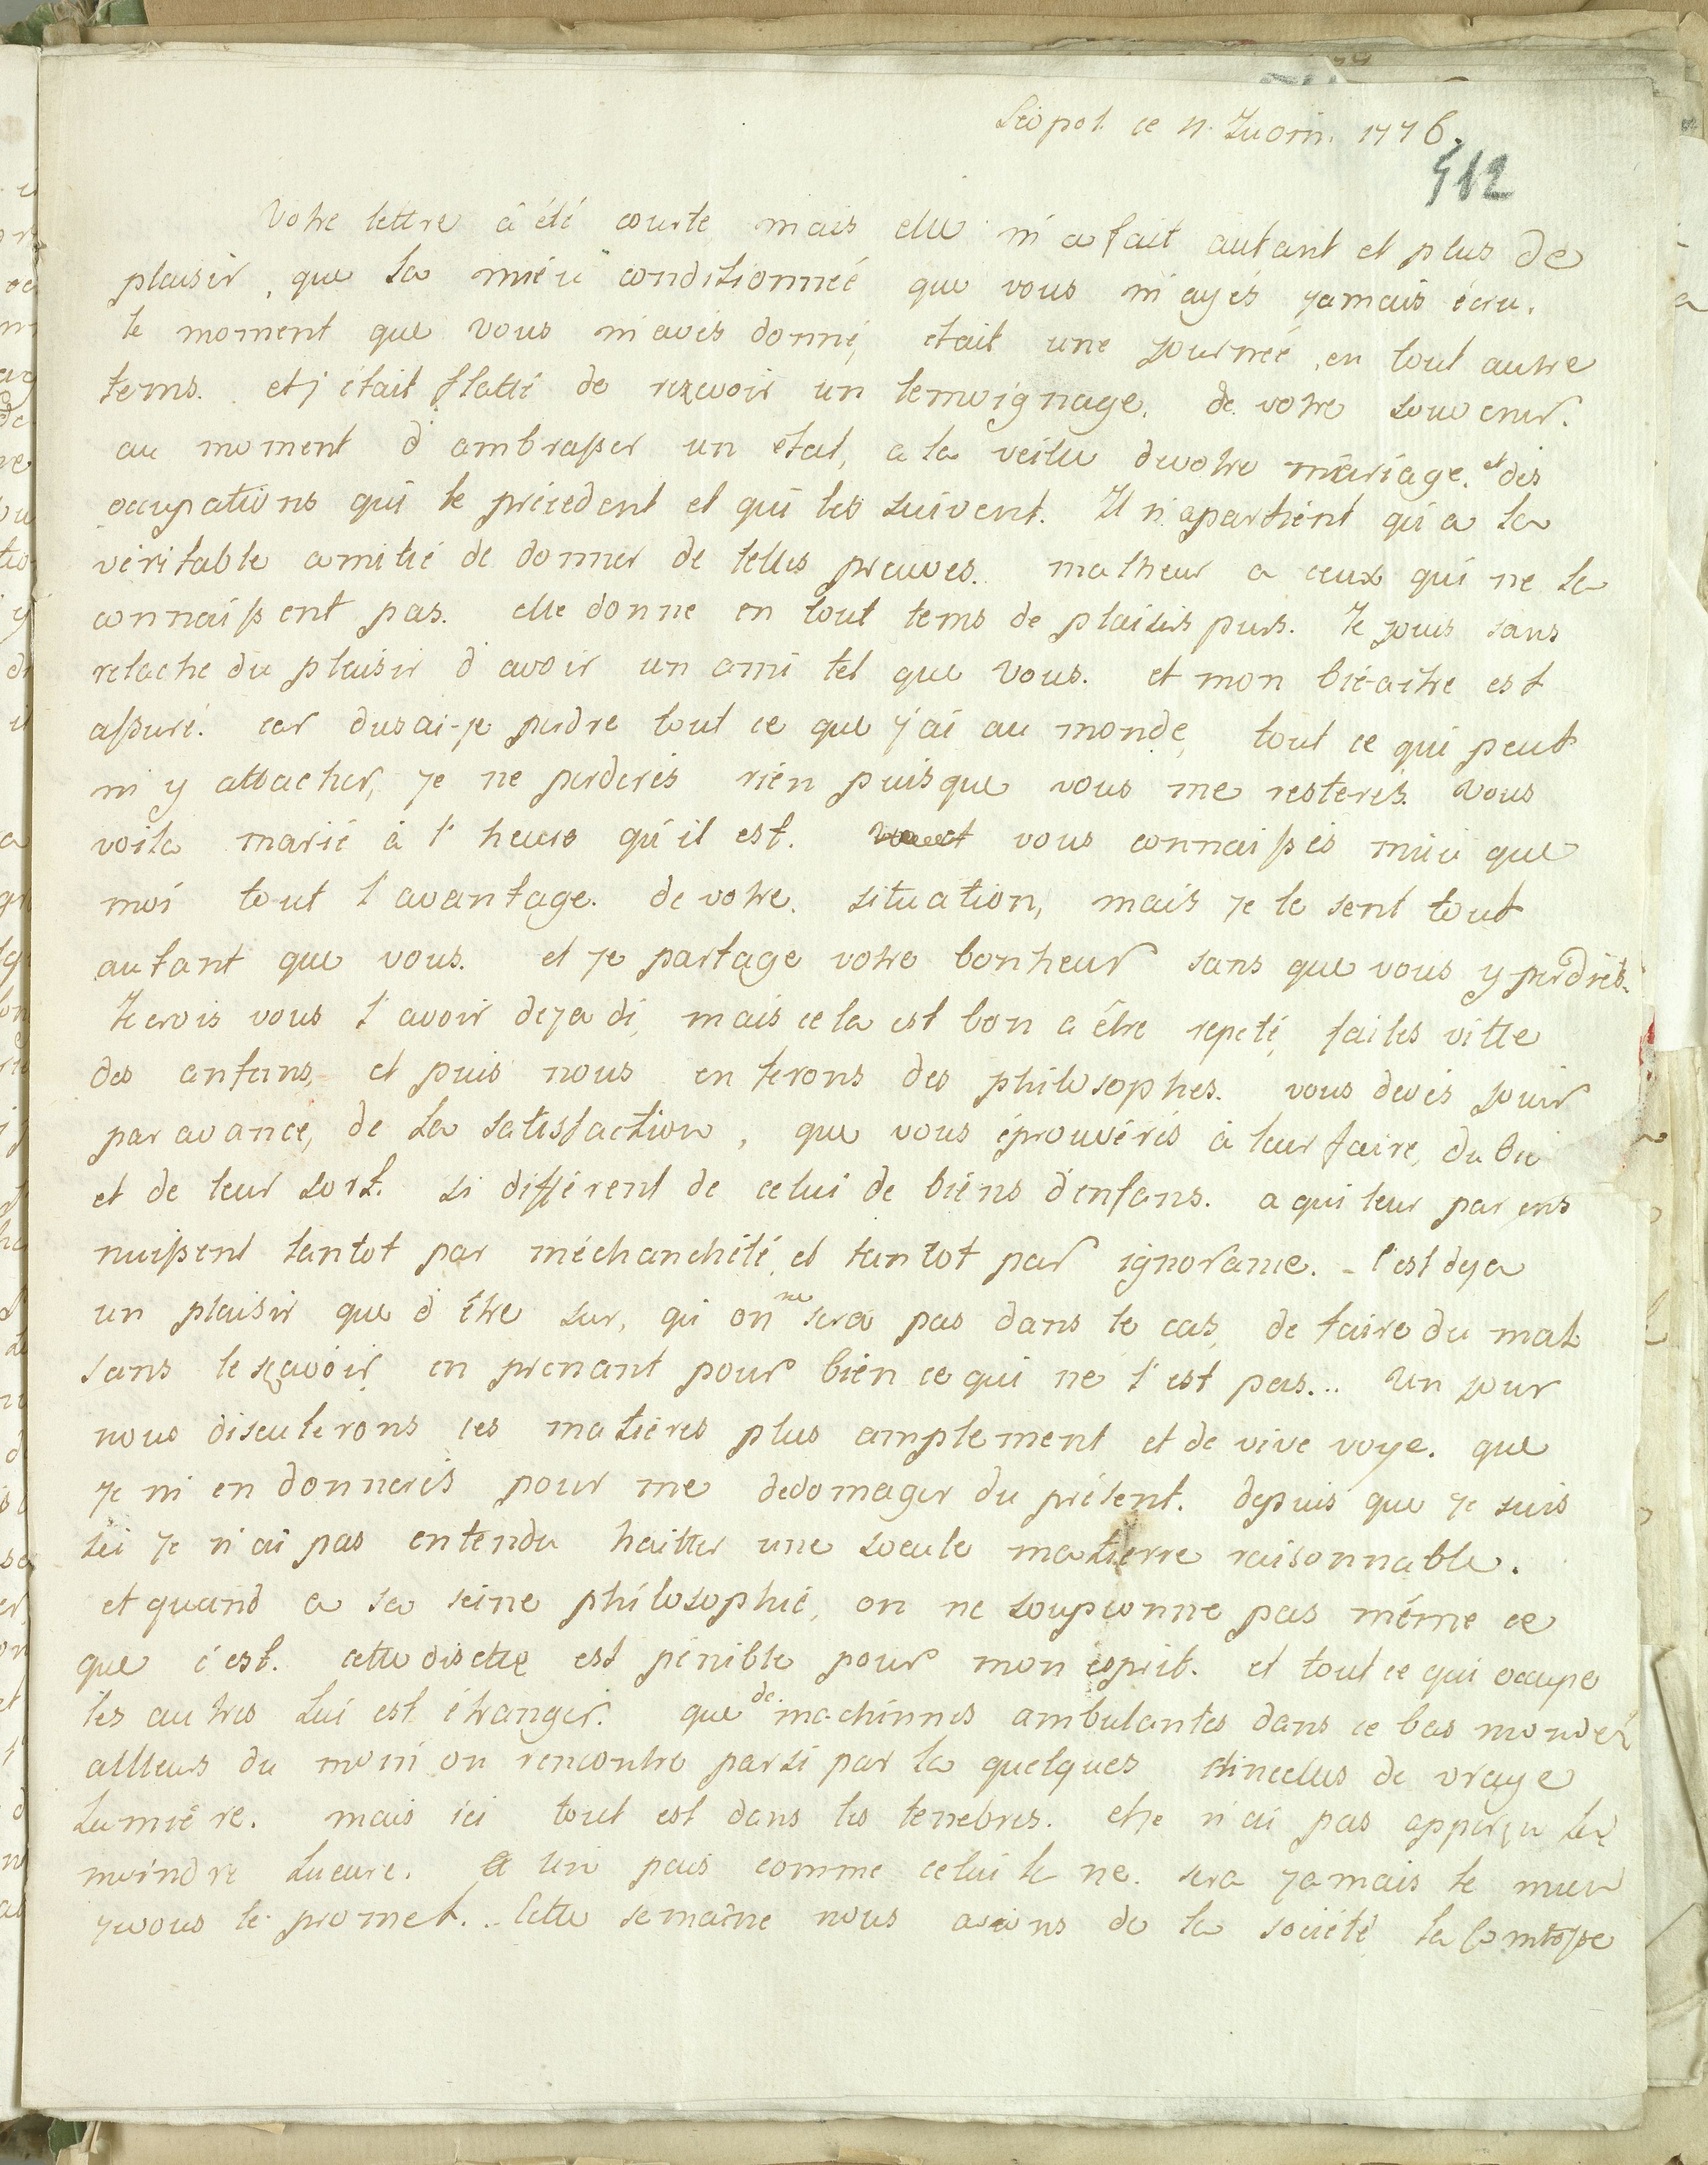 Léopol. ce 11. Juin. 1776.
512
Votre lettre â été courte mais elle m'a fait autant et plus de
plaisir, que la miéu conditionnée que vous m'ayés jamais écru.
le moment que vous m'avés donné, etait une journée, en tout autre
tems. et j'était flatté de reçevoir un temoignage. de votre souvenir.
au moment d'ambrasser un etat, a la veille de votre mariage. et des
occupations qui le précedent et qui les suivent. Il n'apartient qu'a la
véritable amitié de donner de telles preuves. malheur a ceux qui ne la
connaissent pas. elle donne en tout tems de plaisirs purs. Je jouis sans
relache du plaisir d'avoir un ami tel que vous. et mon biéaitre est
assuré. car dusai-je perdre tout ce que j'ai au monde, tout ce qui peut
m'y attacher, je ne perderés rién puisque vous me resterés. Vous
voila marié à l'heure qu'il est. vous connaissés miéu que
moi tout l'avantage. de votre. situation, mais je le sent tout
autant que vous. et je partage votre bonheur sans que vous y perdriés.
Je crois vous l'avoir deja di, mais cela est bon a être repeté, faites vitte
des anfans, et puis nous en ferons des philosophes. vous devés jouir
par avance, de la satisfaction, que vous éprouvérés à leur faire, du bié
et de leur sort. si différent de celui de biéns d'enfans. a qui leur parens
nuissent tantot par méchancheté, et tantot par ignorance. - c'est deja
un plaisir que d'être sur, qu'on ne sera pas dans le cas, de faire du mal
sans le sçavoir, en prenant pour bién ce qui ne l'est pas... Un jour
nous discuterons ces matiéres plus amplement et de vive voye. que
je m'en donnerés pour me dedomager du présent. depuis que je suis
ici je n'ai pas entendu traitter une seeule matierre raisonnable.
et quand a sa seine philosophie, on ne soupconne pas même ce
que c'est. cette disette est pénible pour mon esprit. et tout ce qui occupe
les autres lui est étranger. que de machinnes ambulantes dans ce bas monde!
allleurs du moin on rencontre parsi par la quelques étincelles de vraye
lumiére. mais ici tout est dans les tenebres. et je n'ai pas apperçu la
moindre lueure. Un pais comme celui la ne. sera jamais le mien
je vous le promet. .. Cette semaine nous avions de la société, la Comtesse